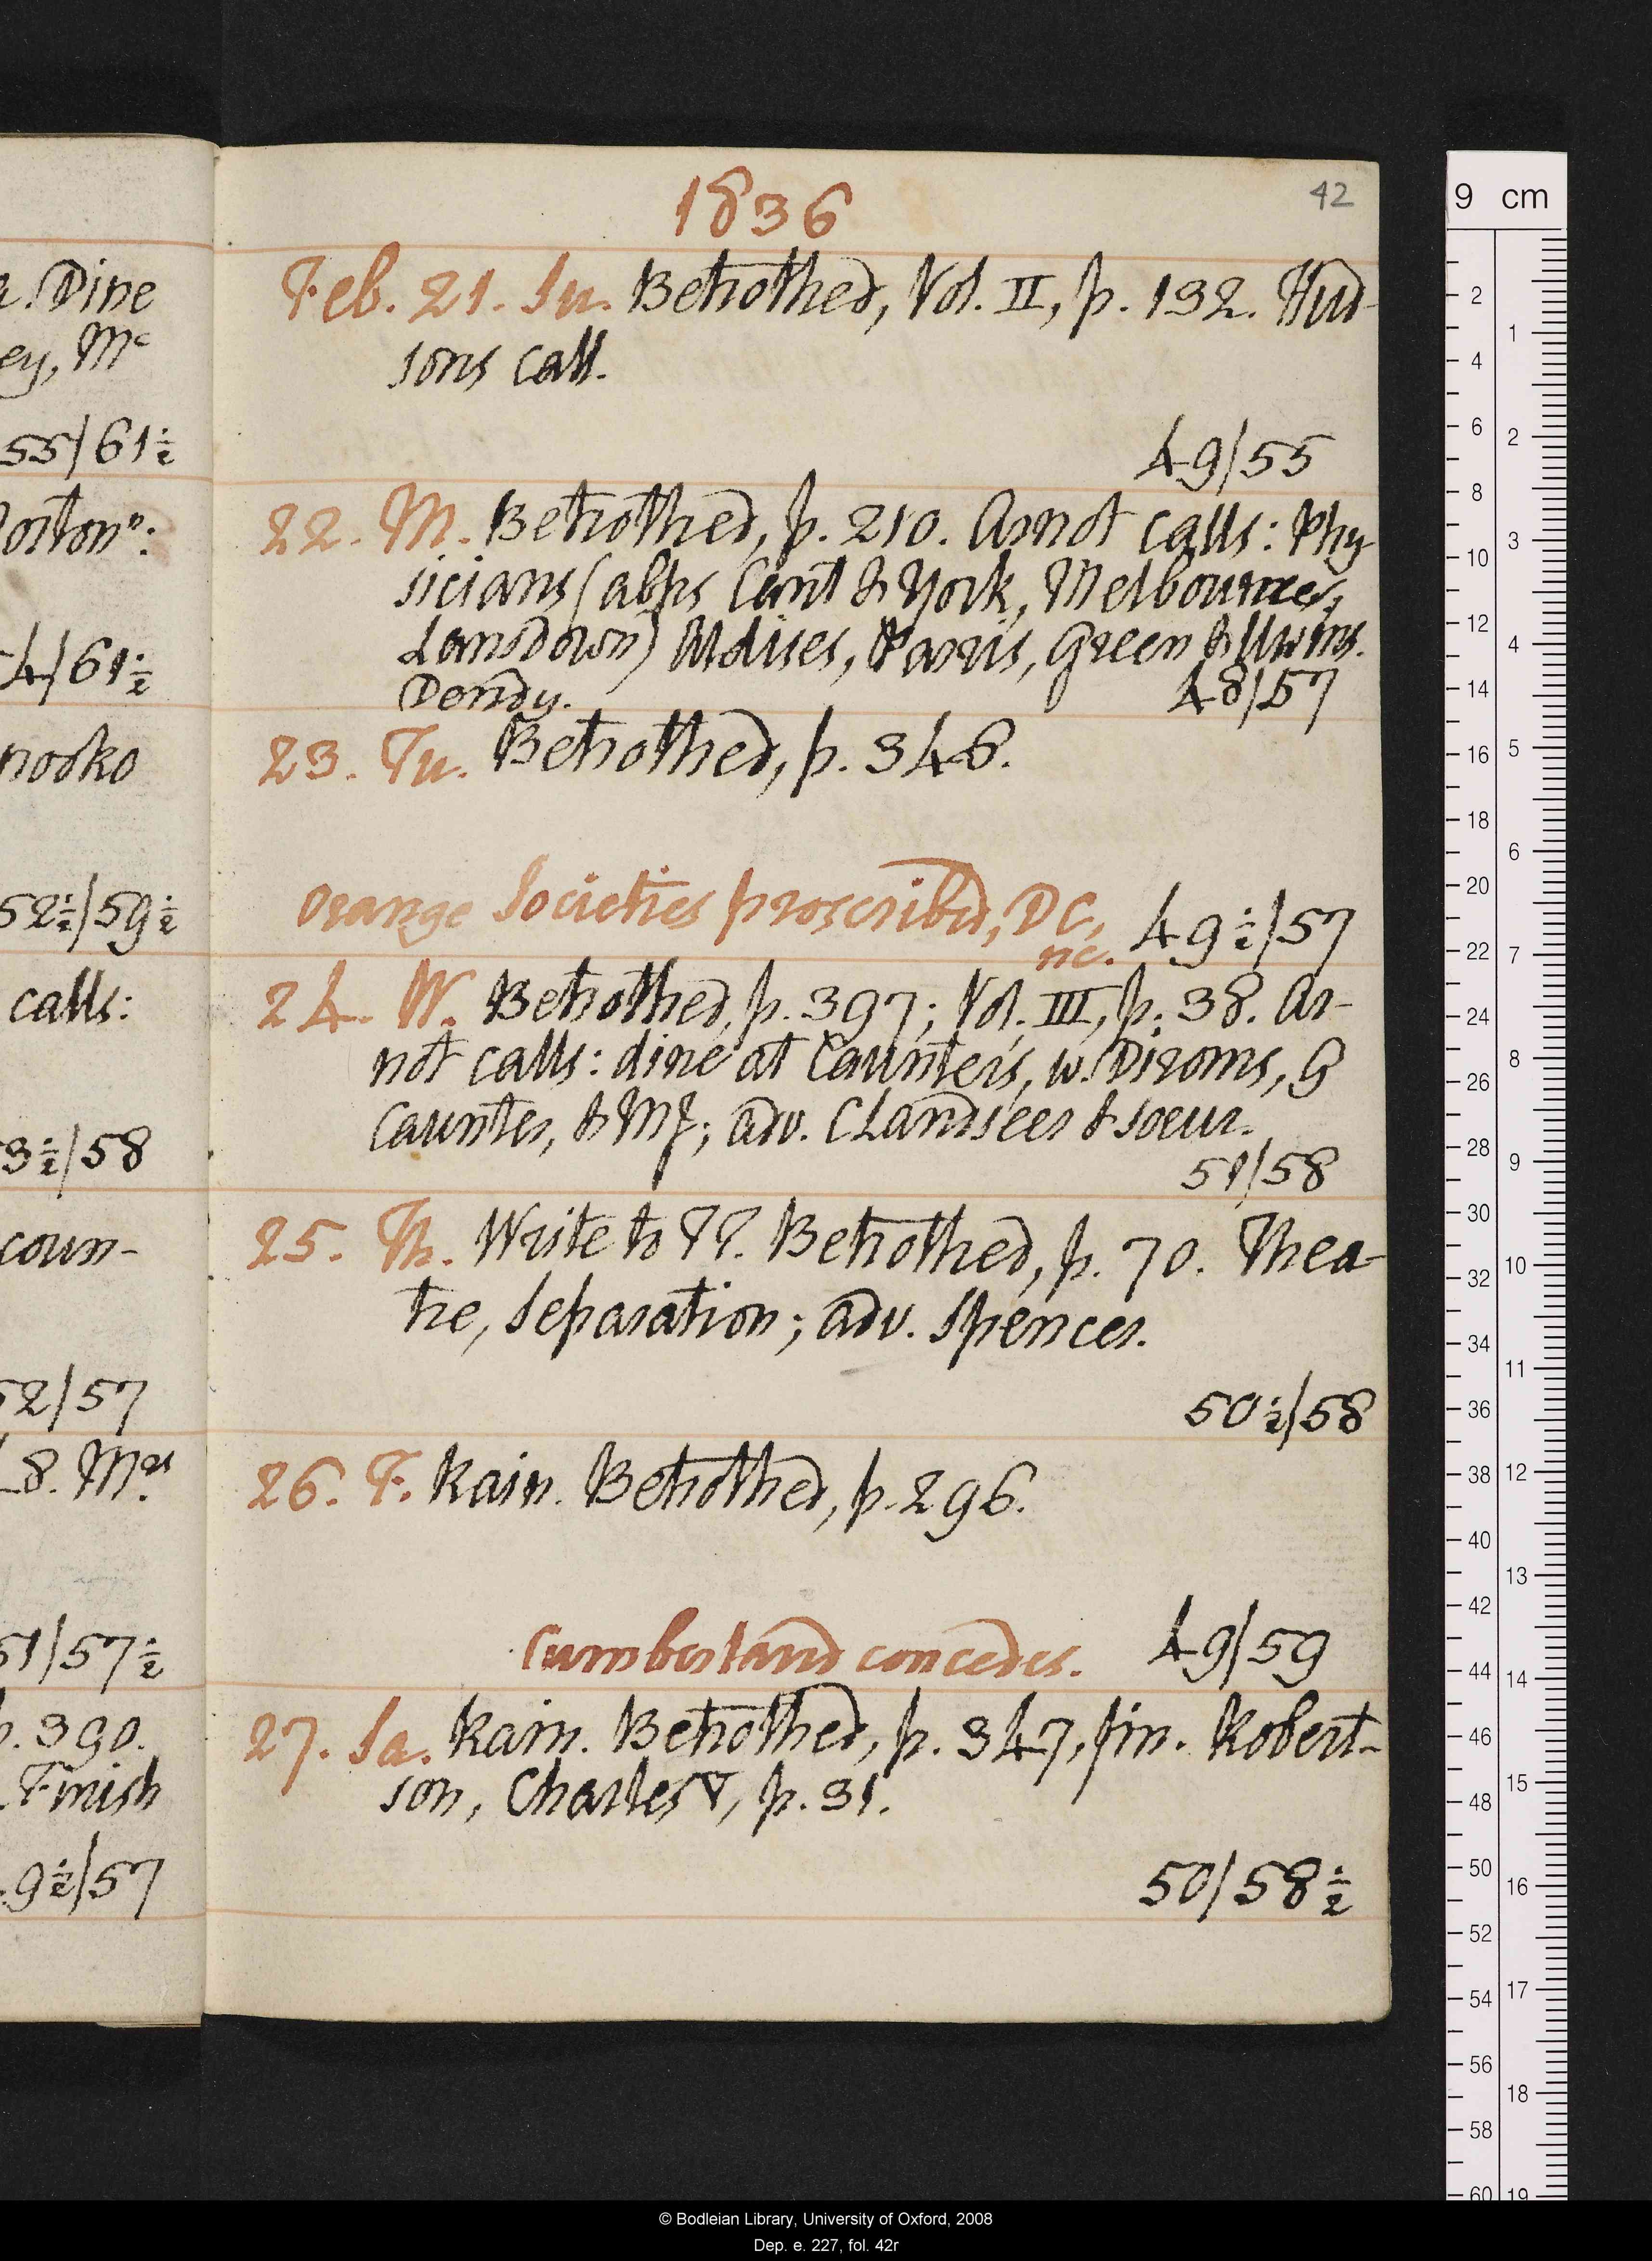 a. Dine
ey, Mc
55/61½
orton":
4/61½
nosko
52½/59½
calls:
3½/58
coun-
52/57
8. Mrs
51/57½
p. 390.
Finish
9½/57
1836
42
Feb. 21. Su. Betrothed, Vol. II, p. 132. Hud-
sons call.
49/55
22. M. Betrothed, p. 210. Arnot calls: Phy-
sicians (abps Cant & York, Melbourne,
Lansdown) Aldises, Parris, Green & Uwins.
Dendy. 48/57
23. Tu. Betrothed, p. 346.
Orange Societies proscribed, DC, 49½/57
nc.
24. W. Betrothed, p. 397; Vol. III, p. 38. Ar-
not calls: dine at Caunters, w. Diroms, G
Caunter, & MJ; adv. CLandseer & soeur.
51/58
25. Th. Write to Betrothed, p. 70. Thea-
tre, Separation; adv. Spences.
50½/58
26. F. Rain. Betrothed, p. 296.
Cumberland concedes. 49/59
27. Sa. Rain. Betrothed, p. 347, fin. Robert-
son, Charles V, p. 31.
50/58½
9 cm
2
4
6
8
10
12
14
16
18
20
22
24
26
28
30
32
34
36
38
40
42
44
46
48
50
52
54
56
58
60
1
2
3
4
5
6
7
8
9
10
11
12
13
14
15
16
17
18
19
© Bodleian Library, University of Oxford, 2008
Dep. e. 227, fol. 42r